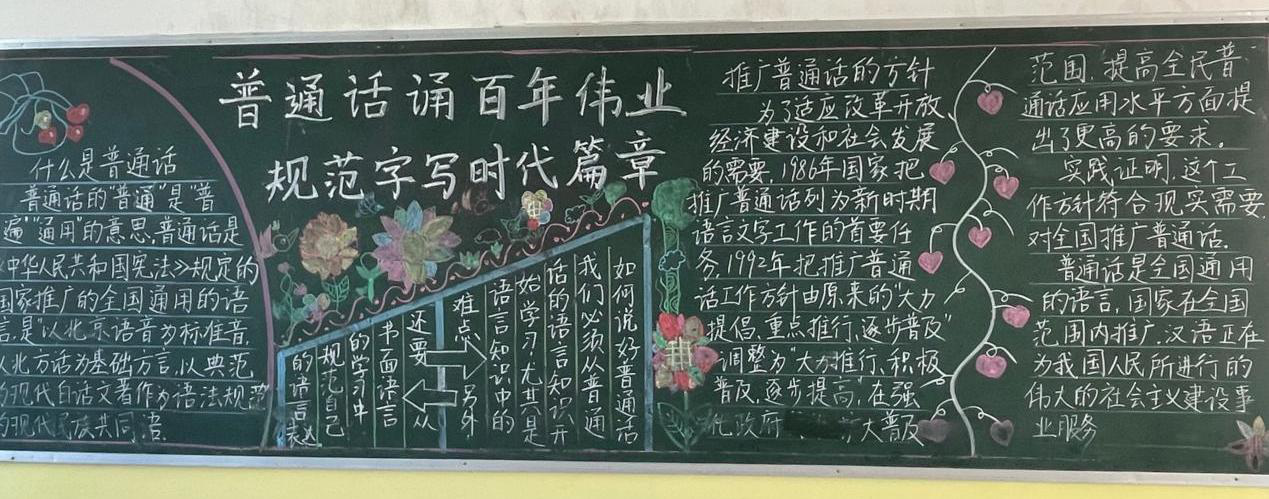 普通话诵百年伟业
规范字写时代篇章
什么是普通话
普通话的"普通"是"普
遍""通用"的意思,普通话是
《中华人民共和国宪法》规定的
国家推广的全国通用的语
言,是"以北京语音为标准音,
以北方话为基础方言,以典范
的现代白话文著作为语法规范
的现代民族共同语。
如何说好普通话
我们必须从普通
话的语言知识开
始学习,尤其是
语言知识中的
难点
另外,
还要
从
书面语言
的学习中
规范自己
的语言
推广普通话的方针
为了适应改革开放、
经济建设和社会发展
的需要,1986年国家把
推广普通话列为新时期
语言文字工作的首要任
务,1992年把推广普通
话工作方针由原来的"大力
提倡,重点推行,逐步普及"
调整为"大力推行,积极
普及,逐步提高",在强
化政府 大普及
范围,提高全民普
通话应用水平方面提
出了更高的要求。
实践证明,这个工
作方针符合现实需要,
对全国推广普通话.
普通话是全国通用
的语言,国家在全国
范围内推广,汉语正在
为我国人民所进行的
伟大的社会主义建设事
业服务